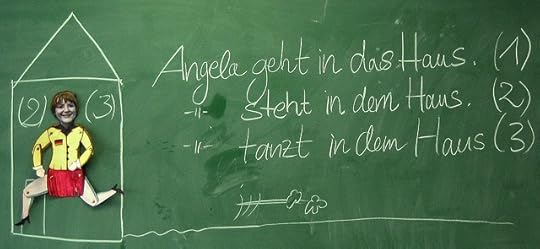 Angela geht in das Haus. (1)
-"- steht in dem Haus. (2)
-"- tanzt in dem Haus (3)
(2) (3)